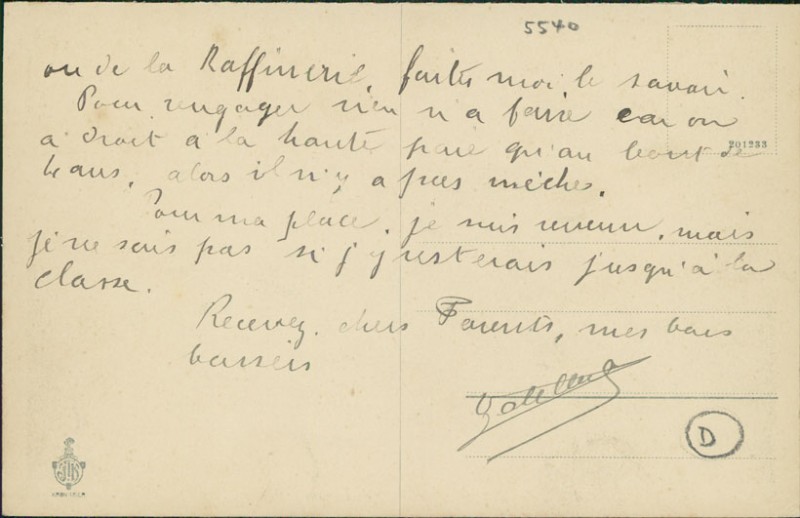 5540
ou de la Raffinerie, faites moi le savoir.
Pour rengager rien n'a faire car on
a droit a la haute paie qu'au bout de
4 ans, alors il n'y a pas mèches.
201233
Pour ma place, je suis revenu, mais
je ne sais pas si j'y resterais jusqu'à la
classe.
Recevez, chers Parents, mes bons
baisers
D